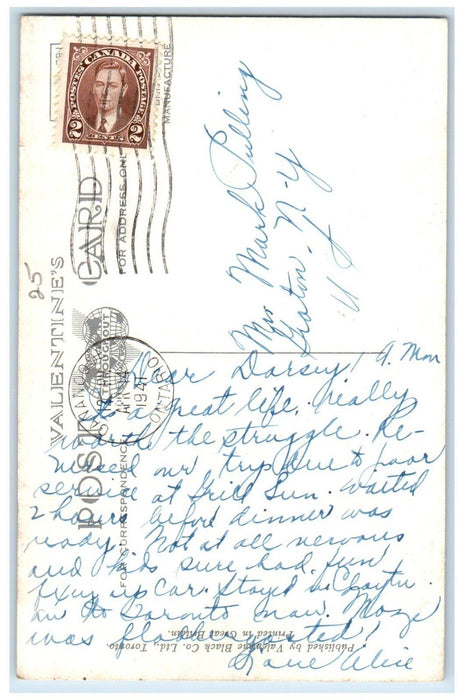 POSTES CANADA POSTAGE
2 CENTS 2
MANUFACTURE
25
VALENTINE'S
POST CARD
FOR ADDRESS ONLY
FOR CORRESPONDENCE
THROUGHOUT
GANANOQUE
1941
ONTARIO
Mrs Mark Pulling
Groton. N-Y
U
Dear Dorsey! 9. Mon
a great life. really
worth the struggle. Re-
versed our trip due to poor
service at Grill Sun. waited
2 hours before dinner was
ready. Not at all nervous
and kids sure had fun
fixing up car. Stayed in
in Toronto
was
Love Alice
Published by Valentine Black Co. Ltd., Toronto
Printed in Great Britain.